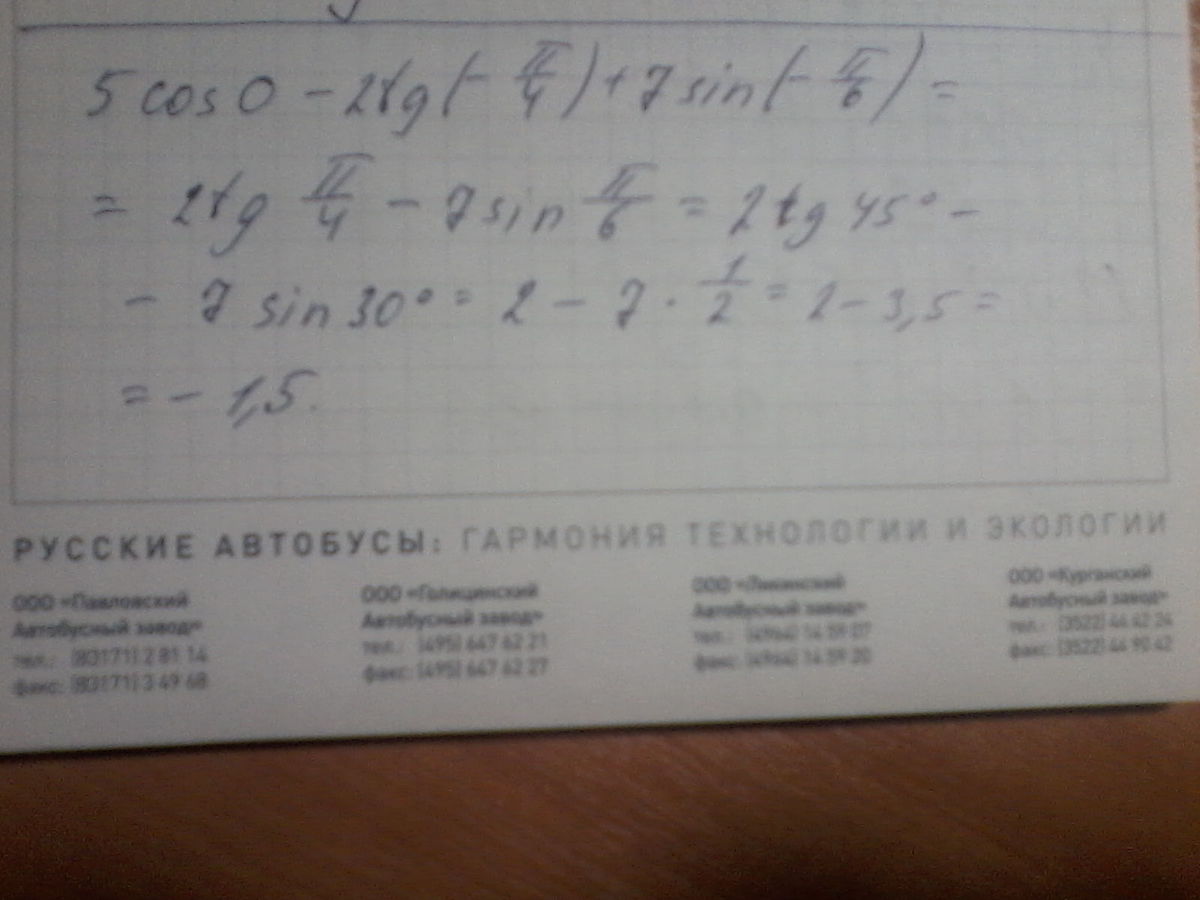 5 cos 0 - 2tg(-π/4) + 7 sin(-π/6) =
= 2tg π/4 - 7 sin π/6 = 2tg 45° -
- 7 sin 30° = 2 - 7 · 1/2 = 2 - 3,5 =
= - 1,5.
РУССКИЕ АВТОБУСЫ: ГАРМОНИЯ ТЕХНОЛОГИИ И ЭКОЛОГИИ
ООО «Павловский
Автобусный завод»
тел.: (83171) 2 81 14
факс: (83171) 3 49 68
ООО «Голицинский
Автобусный завод»
тел.: (495) 647 62 21
факс: (495) 647 62 27
ООО «Ликинский
Автобусный завод»
тел.:
факс:
ООО «Курганский
Автобусный завод»
тел.: (3522)
факс: (3522)